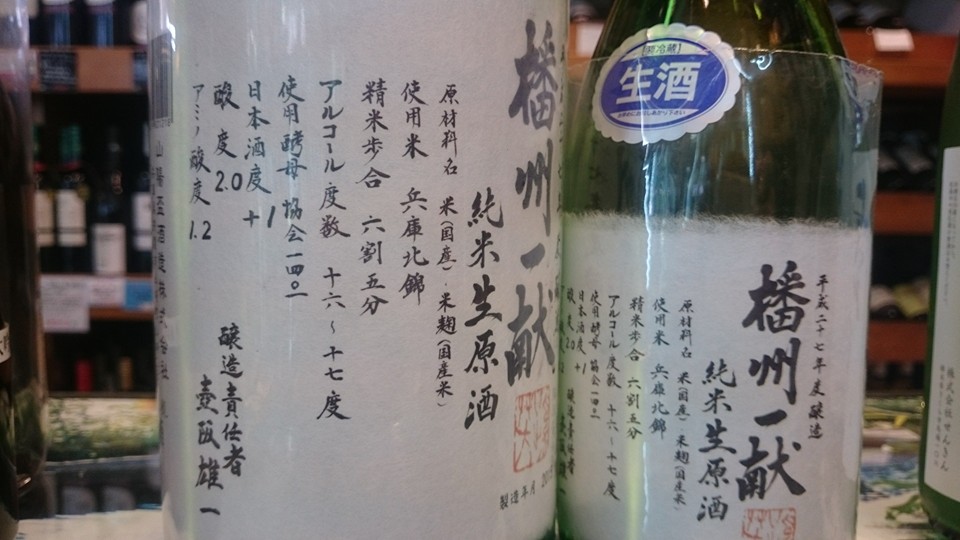 播州一献
純米生原酒
原材料名 米(国産)・米麹(国産米)
使用米 兵庫北錦
精米歩合 六割五分
アルコール度数 十六～十七度
使用酵母 協会一四〇一
日本酒度 +1
酸度 2.0
アミノ酸度 1.2
醸造責任者
壺阪雄一
山陽盃酒造株式会社
製造年月
要冷蔵
生酒
お早めにお召しあがり下さい
平成二十七年度醸造
播州一献
純米生原酒
原材料名 米(国産)・米麹(国産米)
使用米 兵庫北錦
精米歩合 六割五分
アルコール度数 十六～十七度
使用酵母 協会一四〇一
日本酒度 +1
酸度 2.0
醸造責任者
株式会社せんきん